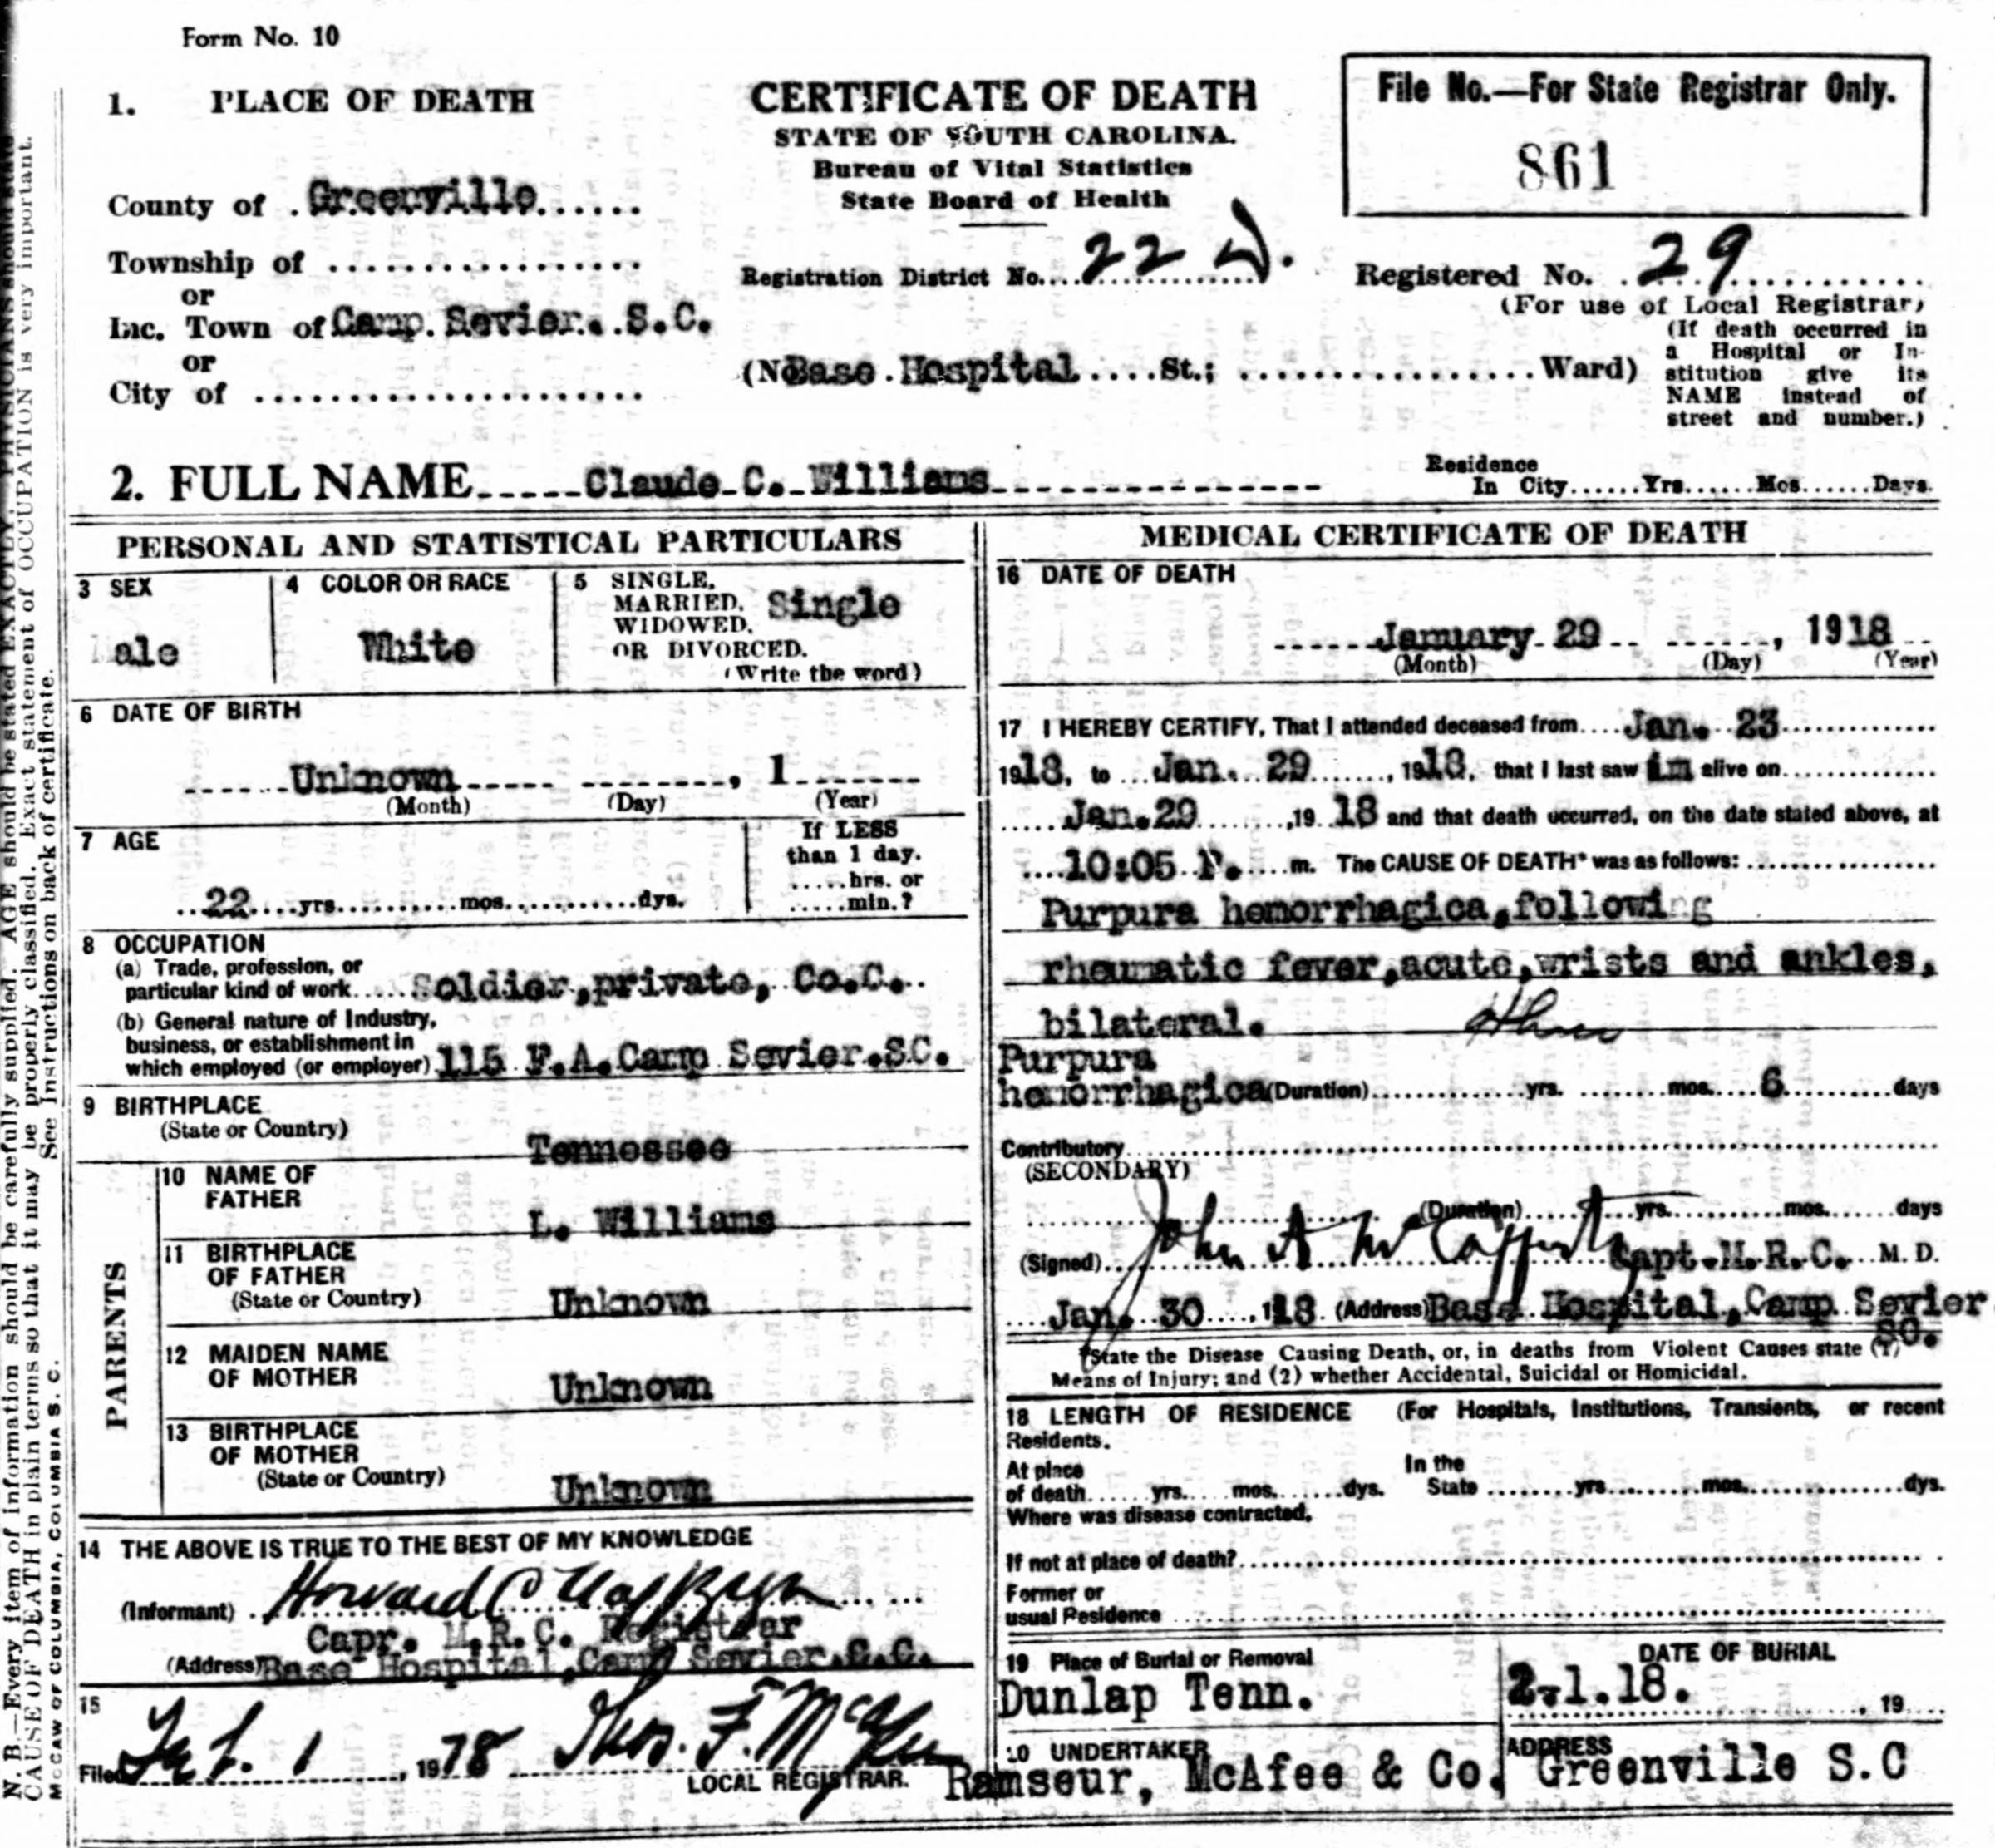 Form No. 10
1. PLACE OF DEATH
CERTIFICATE OF DEATH
STATE OF SOUTH CAROLINA.
Bureau of Vital Statistics
State Board of Health
File No.—For State Registrar Only.
861
County of . Greenville......
Township of .................
or
Inc. Town of Camp. Sevier.. S.C.
or
City of .....................
Registration District No... 22 D.
Registered No. . 29 ...........
(For use of Local Registrar)
(No Base . Hospital .... St.; ................ Ward)
(If death occurred in
a Hospital or In-
stitution give its
NAME instead of
street and number.)
2. FULL NAME.....Claude C. Williams
Residence
In City......Yrs......Mos......Days.
PERSONAL AND STATISTICAL PARTICULARS
3 SEX
ale
4 COLOR OR RACE
White
5 SINGLE,
MARRIED,
WIDOWED,
OR DIVORCED.
(Write the word)
Single
6 DATE OF BIRTH
Unknown , 1
(Month) (Day) (Year)
7 AGE
..22....yrs..........mos............dys.
If LESS
than 1 day.
.....hrs. or
.....min.?
8 OCCUPATION
(a) Trade, profession, or
particular kind of work.... Soldier,private, Co.C...
(b) General nature of Industry,
business, or establishment in
which employed (or employer) 115 F.A.Camp Sevier.SC.
9 BIRTHPLACE
(State or Country)
Tennessee
PARENTS
10 NAME OF
FATHER
L. Williams
11 BIRTHPLACE
OF FATHER
(State or Country)
Unknown
12 MAIDEN NAME
OF MOTHER
Unknown
13 BIRTHPLACE
OF MOTHER
(State or Country)
Unknown
14 THE ABOVE IS TRUE TO THE BEST OF MY KNOWLEDGE
(Informant) . Howard C
Capr. M.R.C. Registrar
(Address) Base Hospital,Camp Sevier.S.C.
15
Filed Feb. 1 , 1978 Thos. F.
LOCAL REGISTRAR.
MEDICAL CERTIFICATE OF DEATH
16 DATE OF DEATH
January 29 , 1918
(Month) (Day) (Year)
17 I HEREBY CERTIFY, That I attended deceased from.... Jan. 23
1918, to ... Jan. 29 ......., 1918, that I last saw im alive on
..... Jan.29 ......,19. 18 and that death occurred, on the date stated above, at
....10:05 P. ....m. The CAUSE OF DEATH* was as follows:
Purpura hemorrhagica,following
rheumatic fever,acute,wrists and ankles,
bilateral.
Purpura
hemorrhagica (Duration).............yrs. ........mos.... 6 ..........days
Contributory
(SECONDARY)
(Duration).....yrs..........mos.......days
(Signed).. John A McCafferty Capt.M.R.C. M. D.
.... Jan. 30 ...., 1918. (Address) Base Hospital,Camp Sevier
SC.
*State the Disease Causing Death, or, in deaths from Violent Causes state (1)
Means of Injury; and (2) whether Accidental, Suicidal or Homicidal.
18 LENGTH OF RESIDENCE (For Hospitals, Institutions, Transients, or recent
Residents.
At place
of death......yrs.....mos.......dys.
In the
State ........yrs..........mos................dys.
Where was disease contracted,
If not at place of death?
Former or
usual Residence
19 Place of Burial or Removal
Dunlap Tenn.
DATE OF BURIAL
2-1.18. , 19
20 UNDERTAKER
Ramseur, McAfee & Co.
ADDRESS
Greenville S.C
N. B.—Every item of information should be carefully supplied. AGE should be stated EXACTLY. PHYSICIANS should state
CAUSE OF DEATH in plain terms so that it may be properly classified. Exact statement of OCCUPATION is very important.
See Instructions on back of certificate.
McCAW OF COLUMBIA, COLUMBIA S. C.